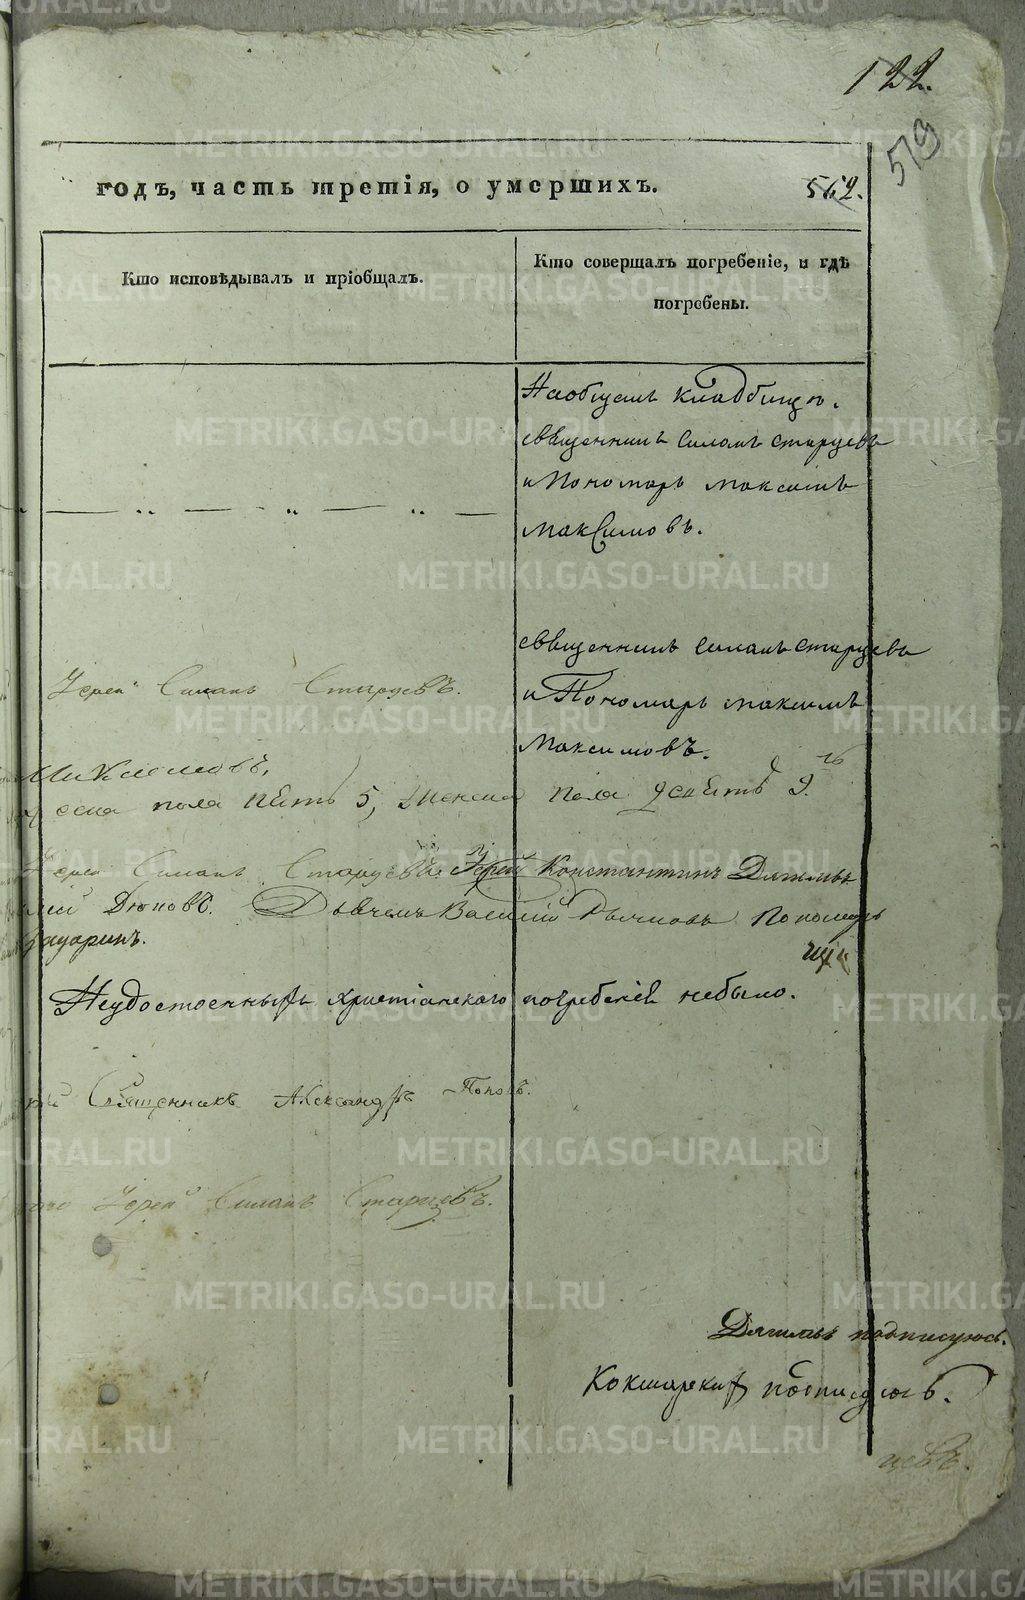 122.
513
годъ, часть третія, о умершихъ.
562.
Кто исповѣдывалъ и пріобщалъ.
Кто совершалъ погребеніе, и гдѣ
погребены.
На общемъ кладбищѣ.
священникъ Симонъ Старцевъ
и Пономарь Максимъ
Максимовъ.
священникъ Симонъ Старцевъ
и Пономарь Максимъ
Максимовъ.
Іерей Симонъ Старцевъ.
Максимовъ.
пола пять 5, женска пола девять 9.
Іерей Симонъ Старцевъ. Іерей Константинъ
Дюковъ. Василій Пономарь
Неудостоенныхъ христіанскаго погребенія небыло.
Священникъ Александръ Поповъ.
Іерей Симонъ Старцевъ.
подписуюсь.
Кокшарскій подписуюсь.
цевъ.
METRIKI.GASO-URAL.RU